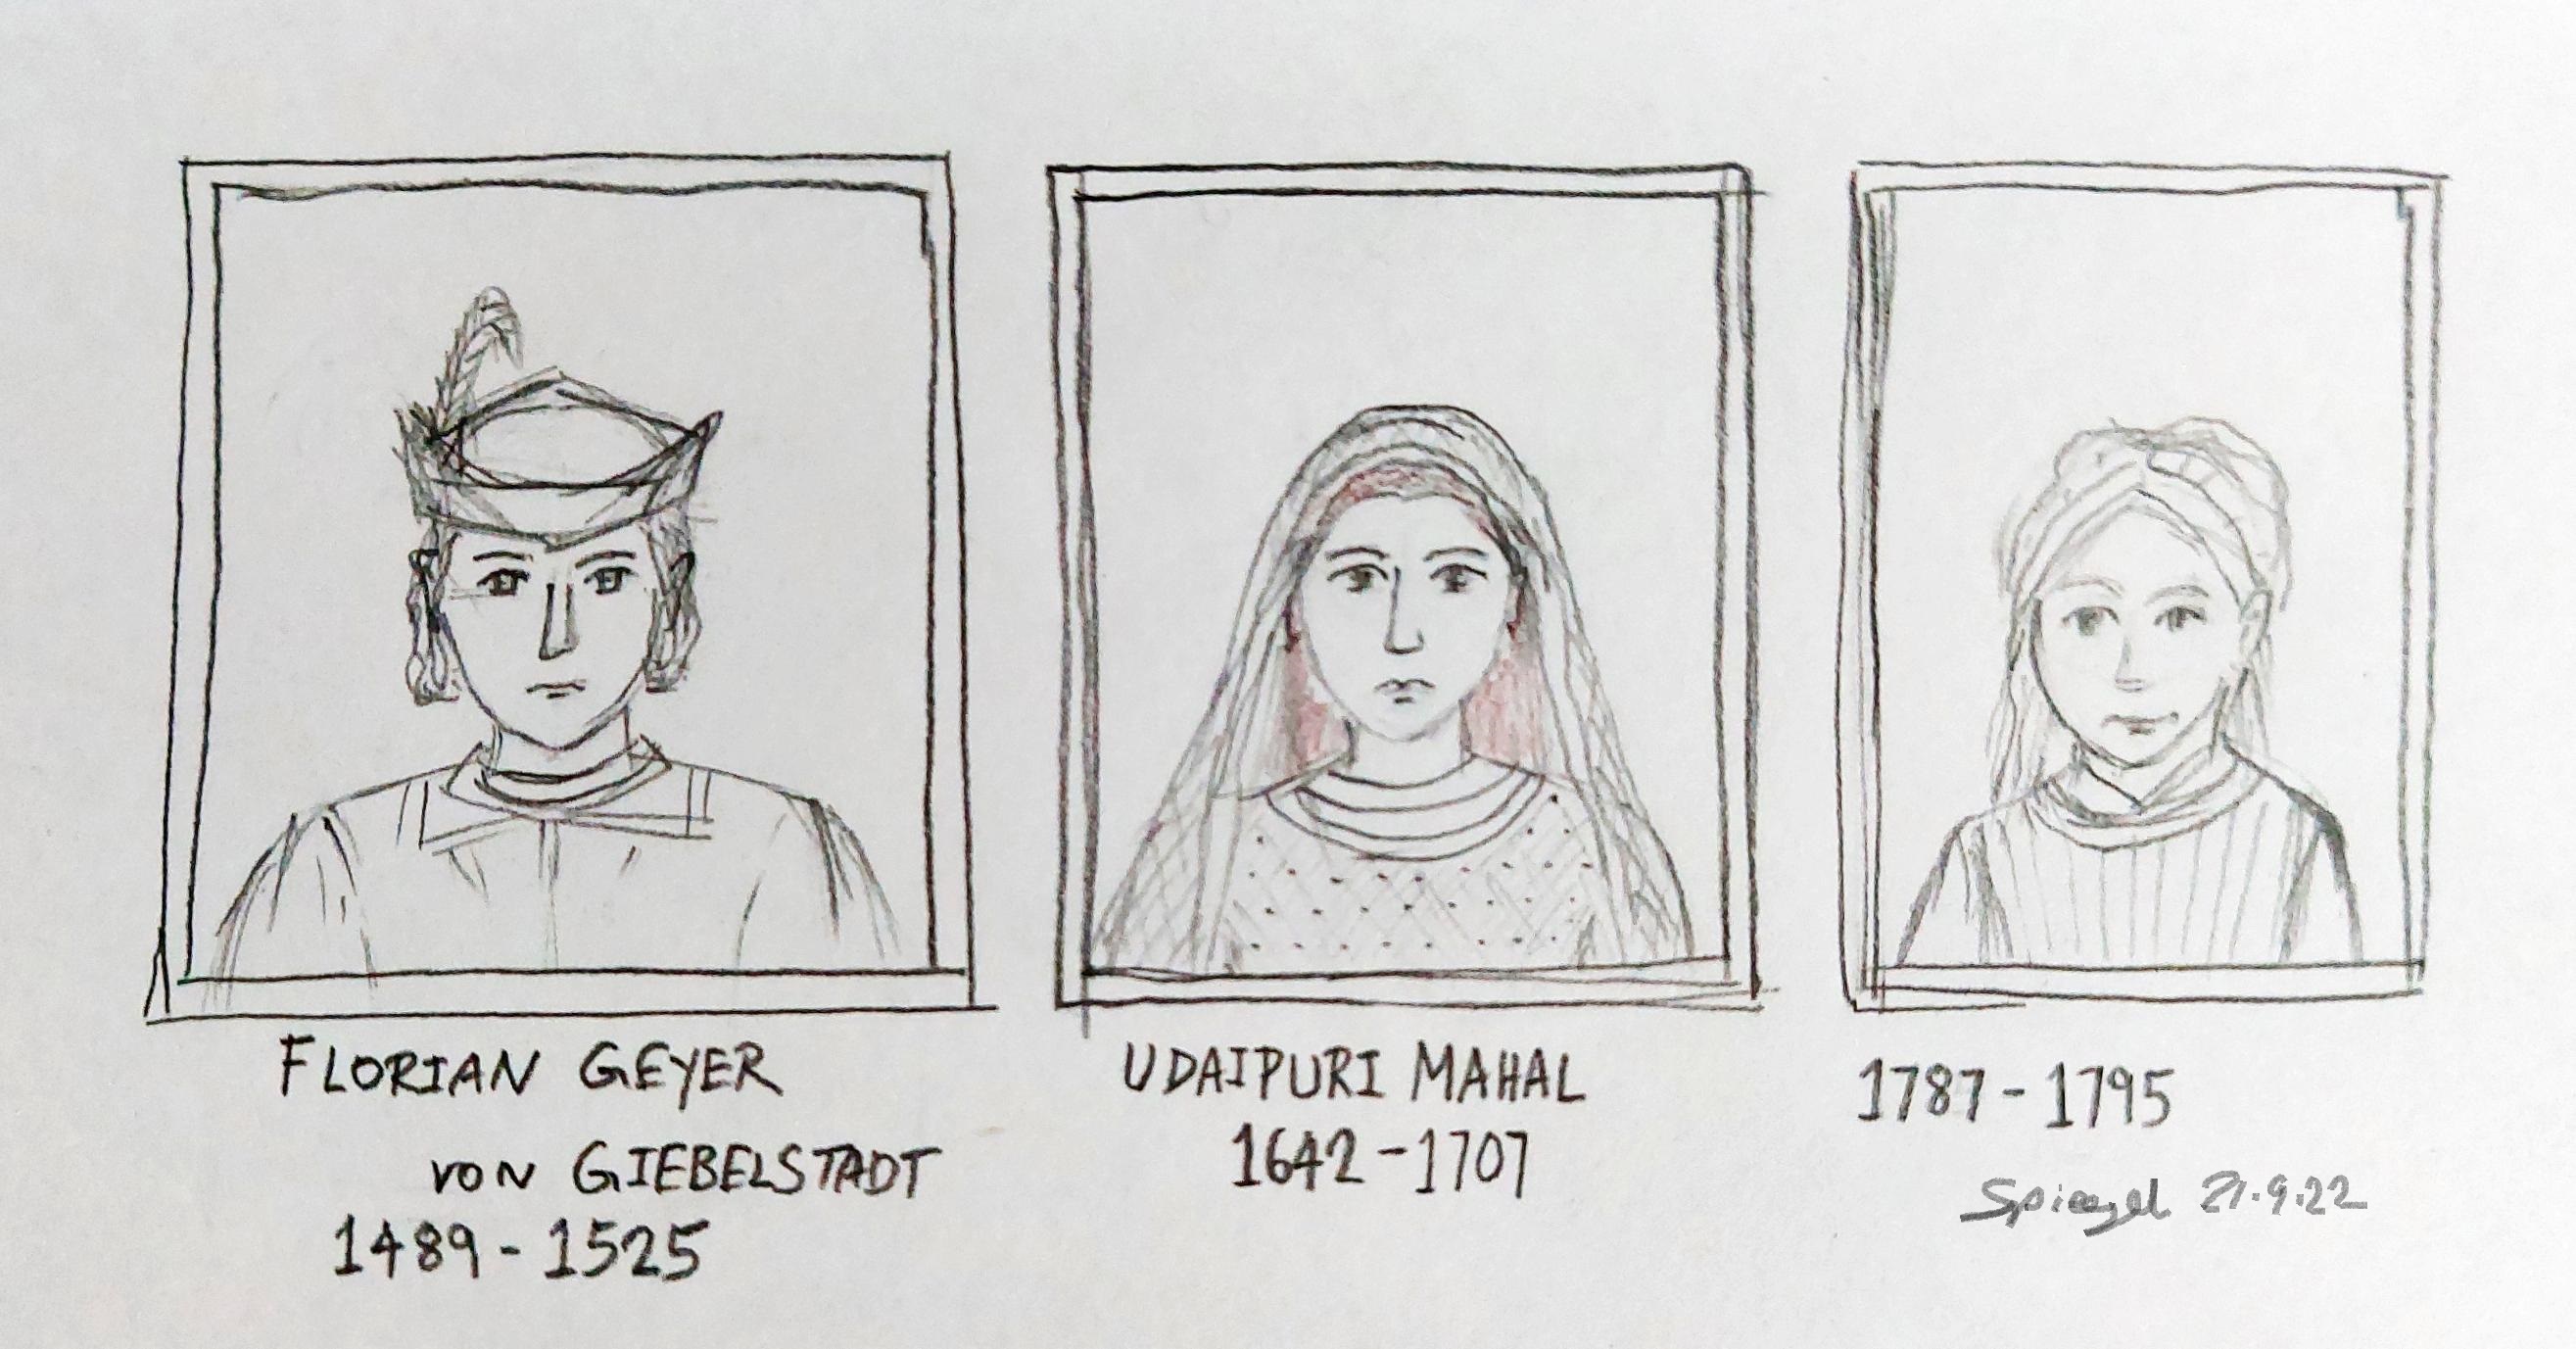 FLORIAN GEYER
VON GIEBELSTADT
1489 - 1525
UDAIPURI MAHAL
1642 - 1707
1787 - 1795
Spiegel 21.9.22